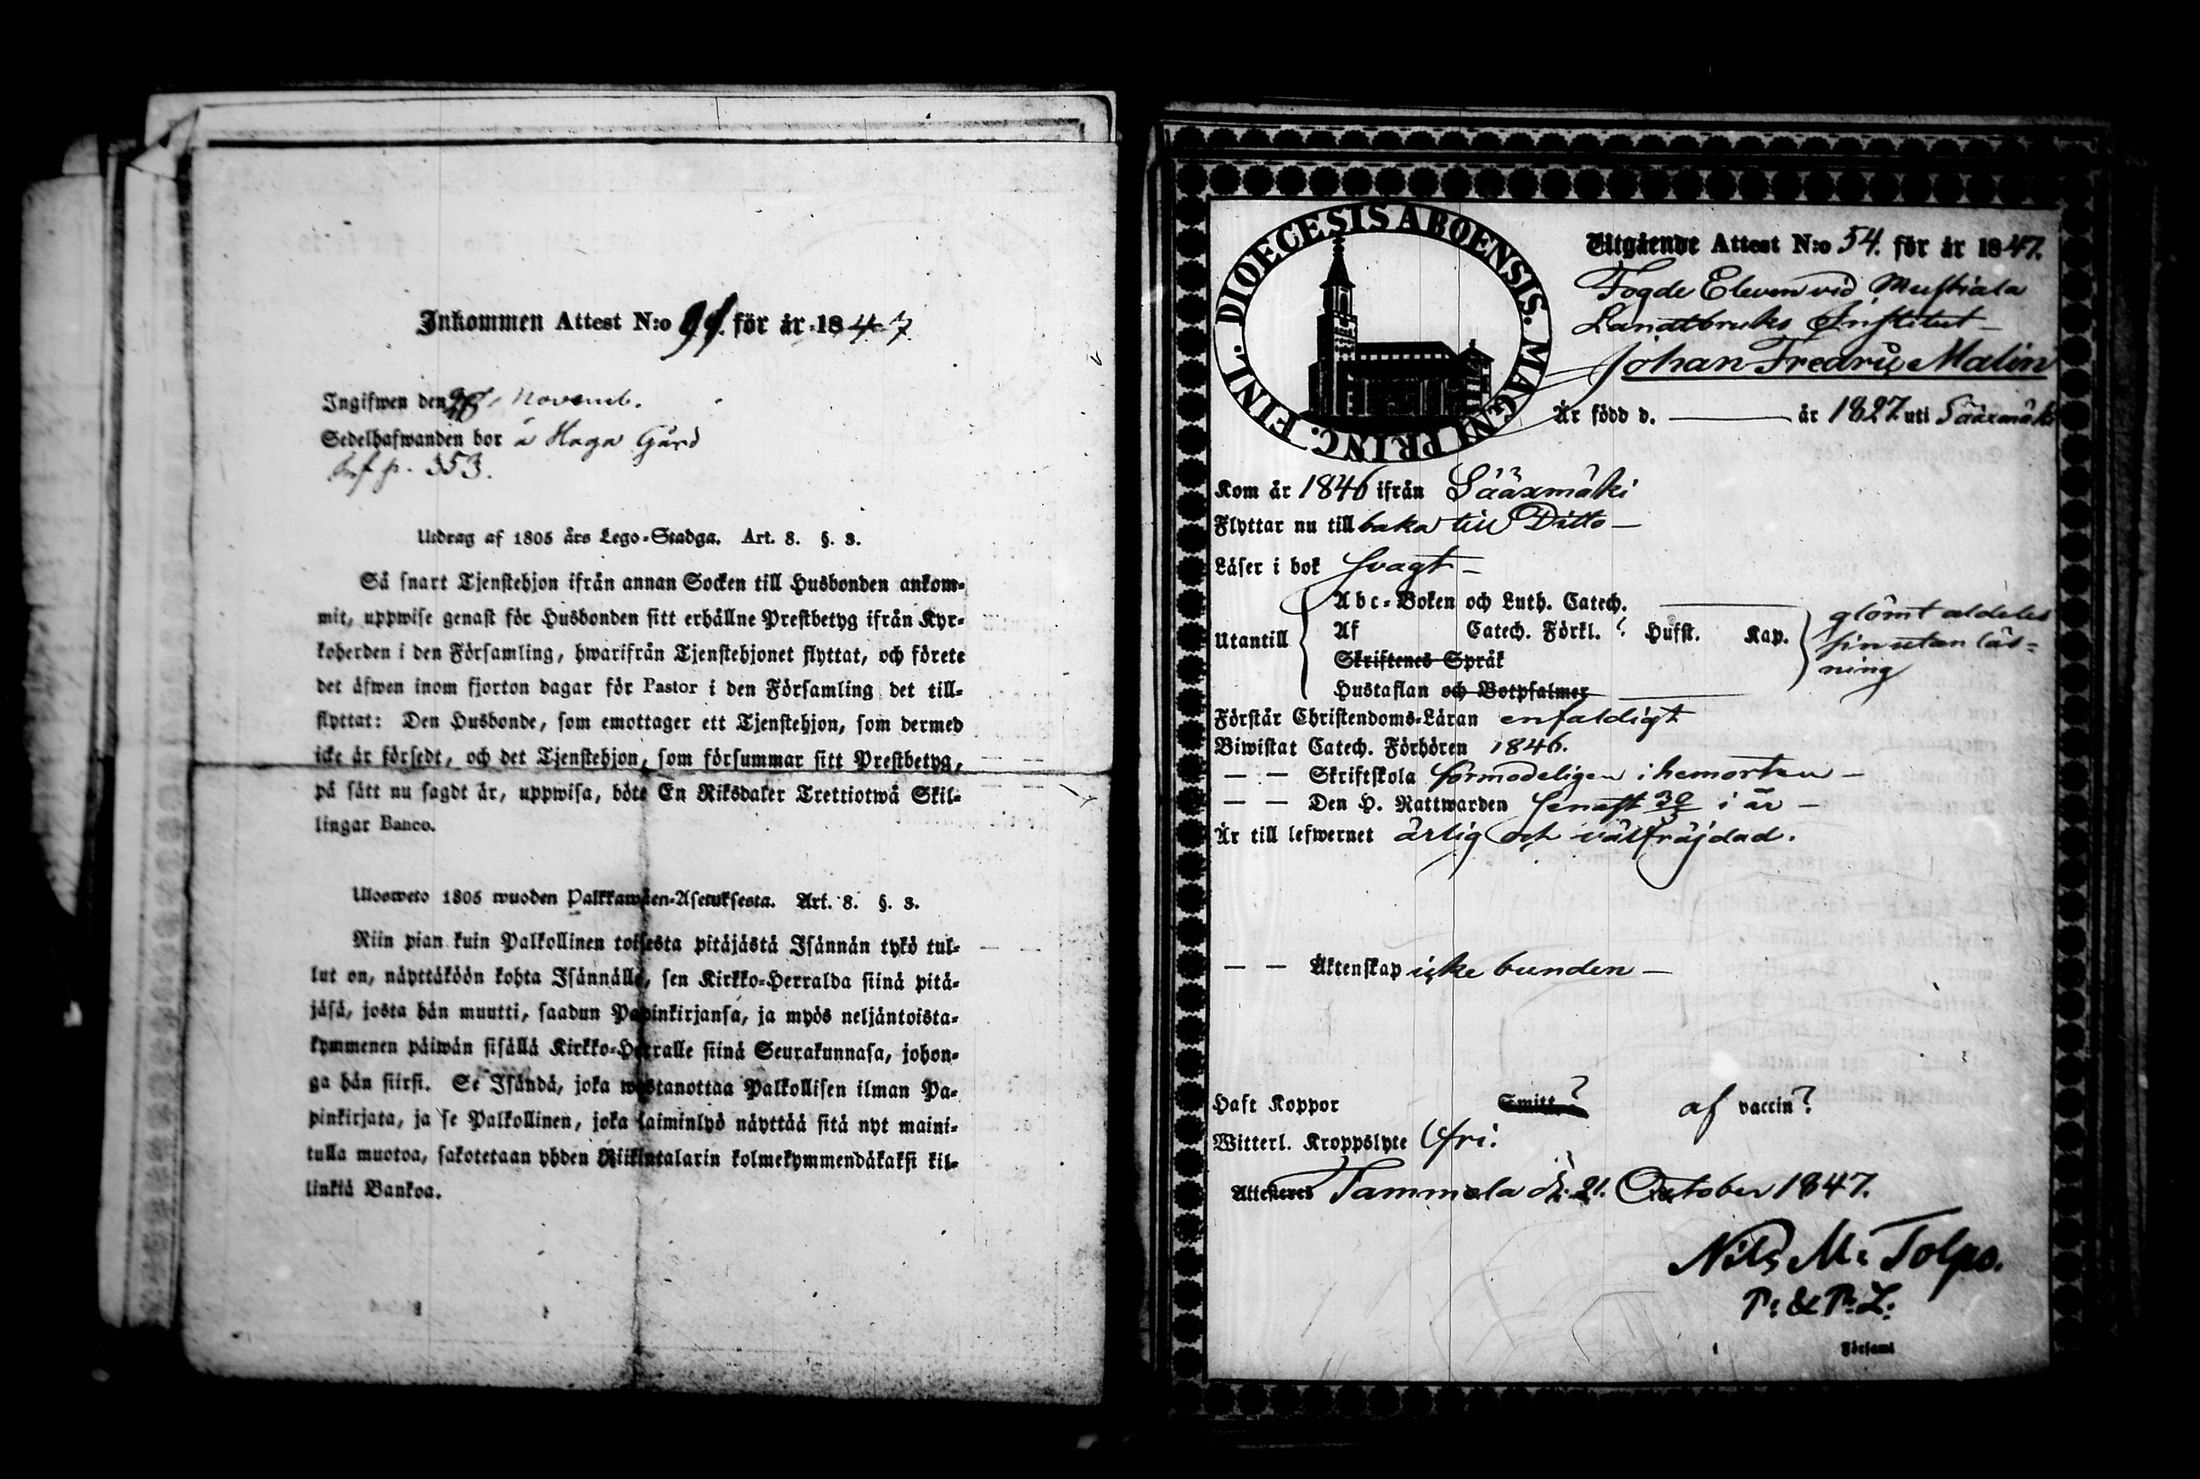 Inkommen Attest N:o 91. för år 1847.
Ingifwen den Novemb.
Sedelhafwanden bor å Haga Gård
p. 353.
Utdrag af 1805 års Lego-Stadga. Art. 8. §. 3.
Så snart Tjenstehjon ifrån annan Socken till Husbonden ankom-
mit, uppwise genast för Husbonden sitt erhållne Prestbetyg ifrån Kyr-
koherden i den Församling, hwarifrån Tjenstehjonet flyttat, och förete
det äfwen inom fjorton dagar för Pastor i den Församling det till-
flyttat: Den Husbonde, som emottager ett Tjenstehjon, som dermed
icke är försedt, och det Tjenstehjon, som försummar sitt Prestbetyg,
på sätt nu sagdt är, uppwisa, böte En Riksdaler Trettiotwå Skil-
lingar Banco.
Ulosweto 1805 wuoden Palkkawäen-Asetuksesta. Art. 8. §. 3.
Niin pian kuin Palkollinen toisesta pitäjästä Isännän tykö tul-
lut on, näyttäköön kohta Isännälle, sen Kirkko-Herralda siinä pitä-
jäsä, josta hän muutti, saadun Papinkirjansa, ja myös neljäntoista-
kymmenen päiwän sisällä Kirkko-Herralle siinä Seurakunnasa, johon-
ga hän siirsi. Se Isändä, joka wastanottaa Palkollisen ilman Pa-
pinkirjata, ja se Palkollinen, joka laiminlyö näyttää sitä nyt maini-
tulla muotoa, sakotetaan yhden Riikintalarin kolmekymmendäkaksi kil-
linkiä Bankoa.
DIOECESIS ABOENSIS. MAGNI PRINC. FINL.
Utgående Attest N:o 54. för år 1847.
Fogde Eleven vid Mustiala
Landtbruks Institut
Johan Fredric Malin
Är född d. år 1827 uti Sääxmäki
Kom år 1846 ifrån Sääxmäki
Flyttar nu till baka till Ditto
Läser i bok svagt
Abc-Boken och Luth. Catech.
Utantill Af Catech. Förkl. ? Hufst. Kap. glömt aldeles
Skriftenes Språk sin utan läs-
Hustaflan och Botpsalmer ning
Förstår Christendoms-Läran enfaldigt
Biwistat Catech. Förhören 1846.
— — Skriftskola förmodeligen i hemorten
— — Den H. Nattwarden senast i år
Är till lefwernet ärlig och välfräjdad.
— — Äktenskap icke bunden
Haft Koppor Smitt. ? af vaccin ?
Witterl. Kroppslyte fri.
Attesteres Tammela d. 21. October 1847.
Nils M. Tolpo.
P: & P. L:
1 Församl